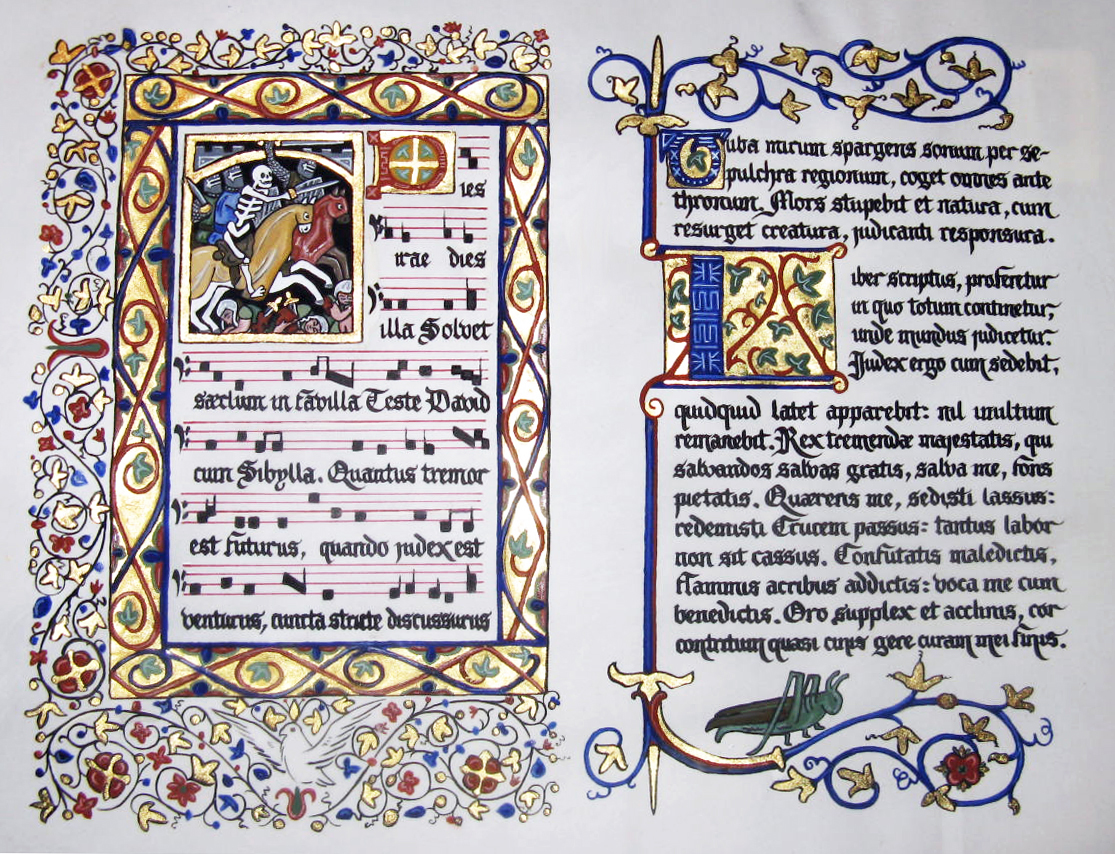 Dies
irae dies
illa Solvet
sæclum in favilla Teste David
cum Sibylla. Quantus tremor
est futurus, quando judex est
venturus, cuncta stricte discussurus
Tuba mirum spargens sonum per se-
pulchra regionum, coget omnes ante
thronum. Mors stupebit et natura, cum
resurget creatura, judicanti responsura.
Liber scriptus, proferetur
in quo totum continetur,
unde mundus judicetur.
Judex ergo cum sedebit,
quidquid latet apparebit: nil inultum
remanebit. Rex tremendæ majestatis, qui
salvandos salvas gratis, salva me, fons
pietatis. Quærens me, sedisti lassus:
redemisti Crucem passus: tantus labor
non sit cassus. Confutatis maledictis,
flammis acribus addictis: voca me cum
benedictis. Oro supplex et acclinis, cor
contritum quasi cinis gere curam mei finis.